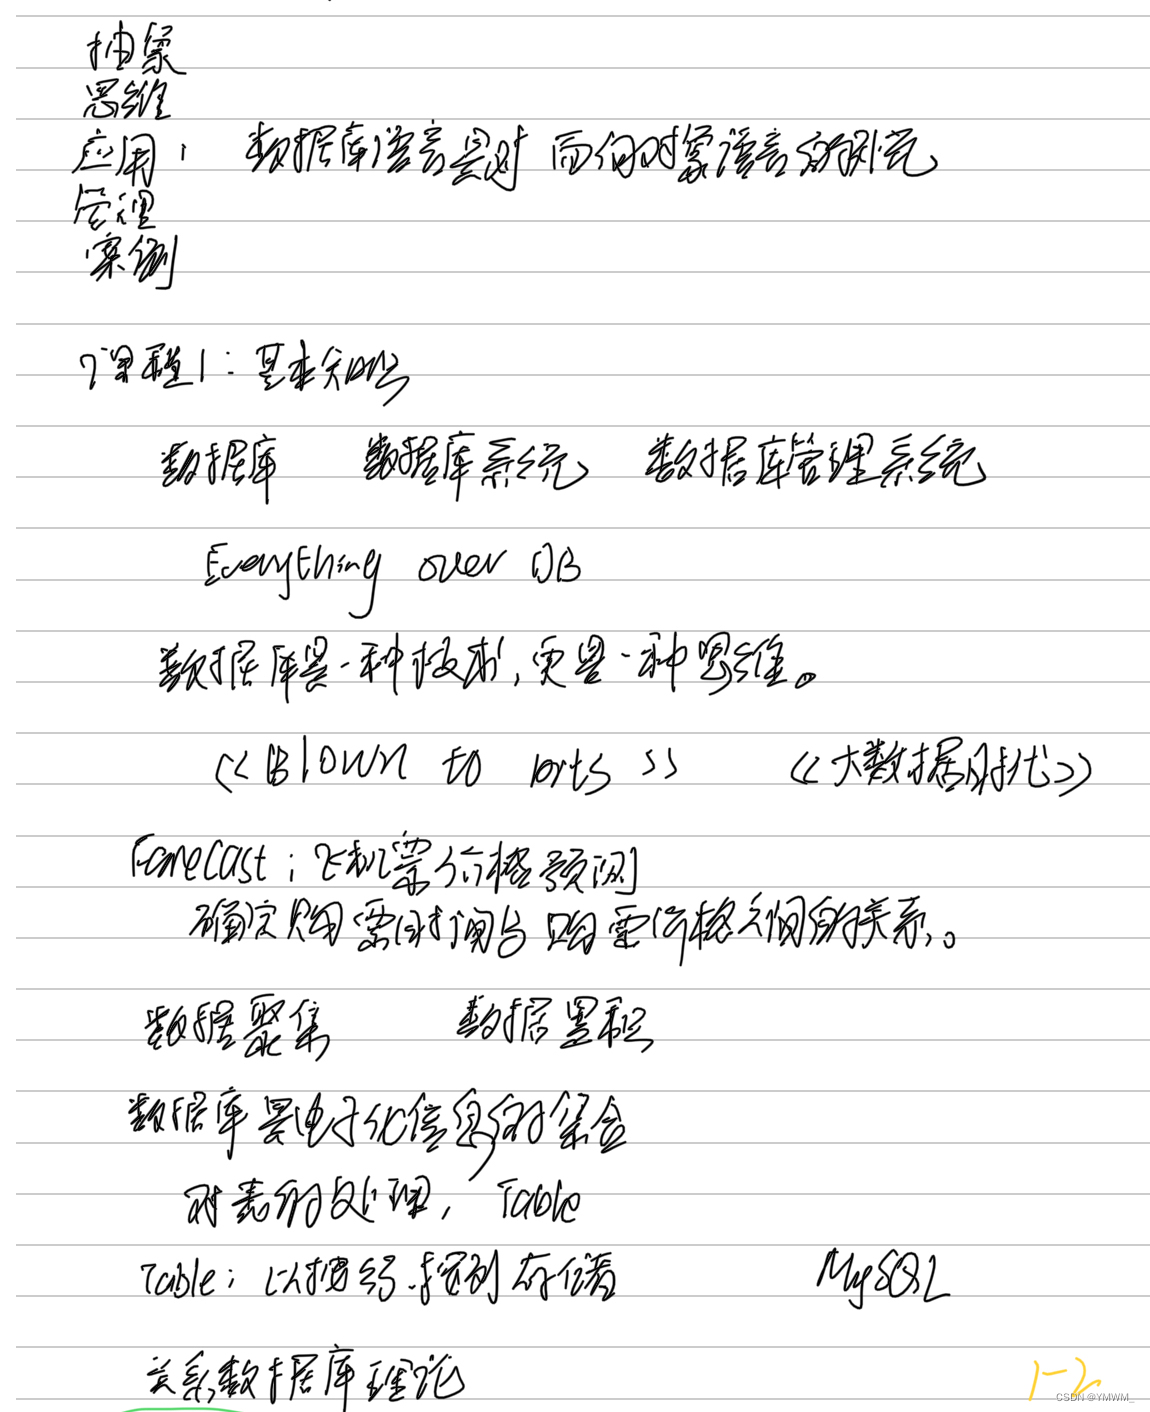 抽象
思维
应用: 数据库语言是对 面向对象语言的
管理
案例
课程1: 基本知识
数据库 数据库系统 数据库管理系统
Everything over DB
数据库是一种技术,更是一种思维。
<<Blown to bits>> <<大数据时代>>
Forecast: 飞机票价格预测
确定购票时间与购票价格之间的关系。
数据聚集 数据累积
数据库是电子化信息的集合
对表的处理, Table
Table: 以按行.按列存储 MySQL
关系数据库理论
1-2
CSDN @YMWM_